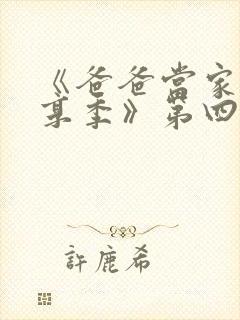 《爸爸當家
某季》第四
許鹿希